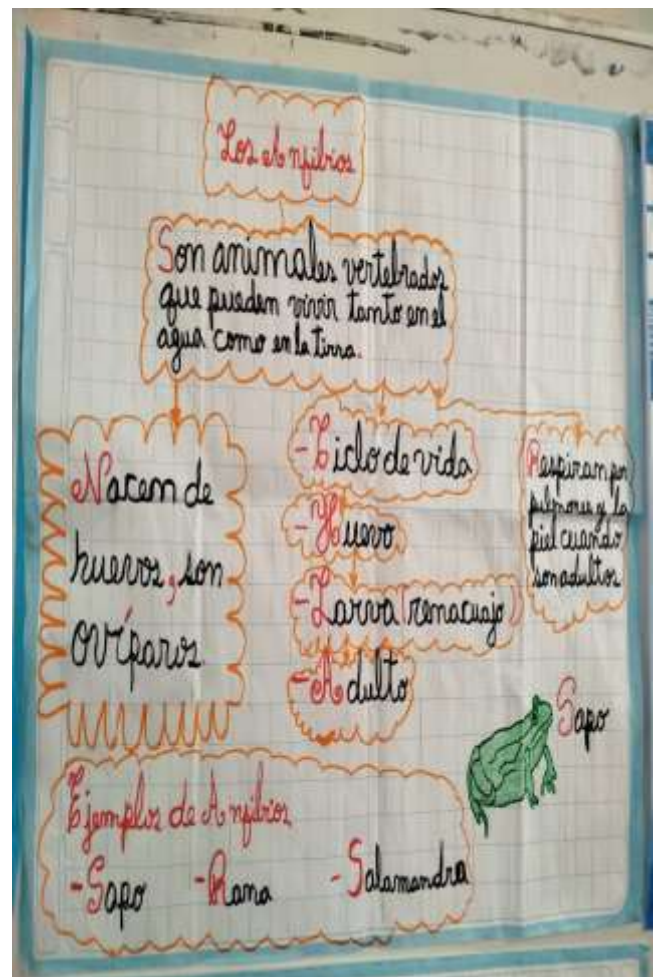 Los Anfibios
Son animales vertebrados
que pueden vivir tanto en el
agua como en la tirra.
Nacen de
huevos, son
ovíparos.
-Ciclo de vida
-Huevo
-Larva (renacuajo)
-Adulto
Respiran por
pulmones y la
piel cuando
son adultos
Sapo
Ejemplos de Anfibios
-Sapo -Rana -Salamandra